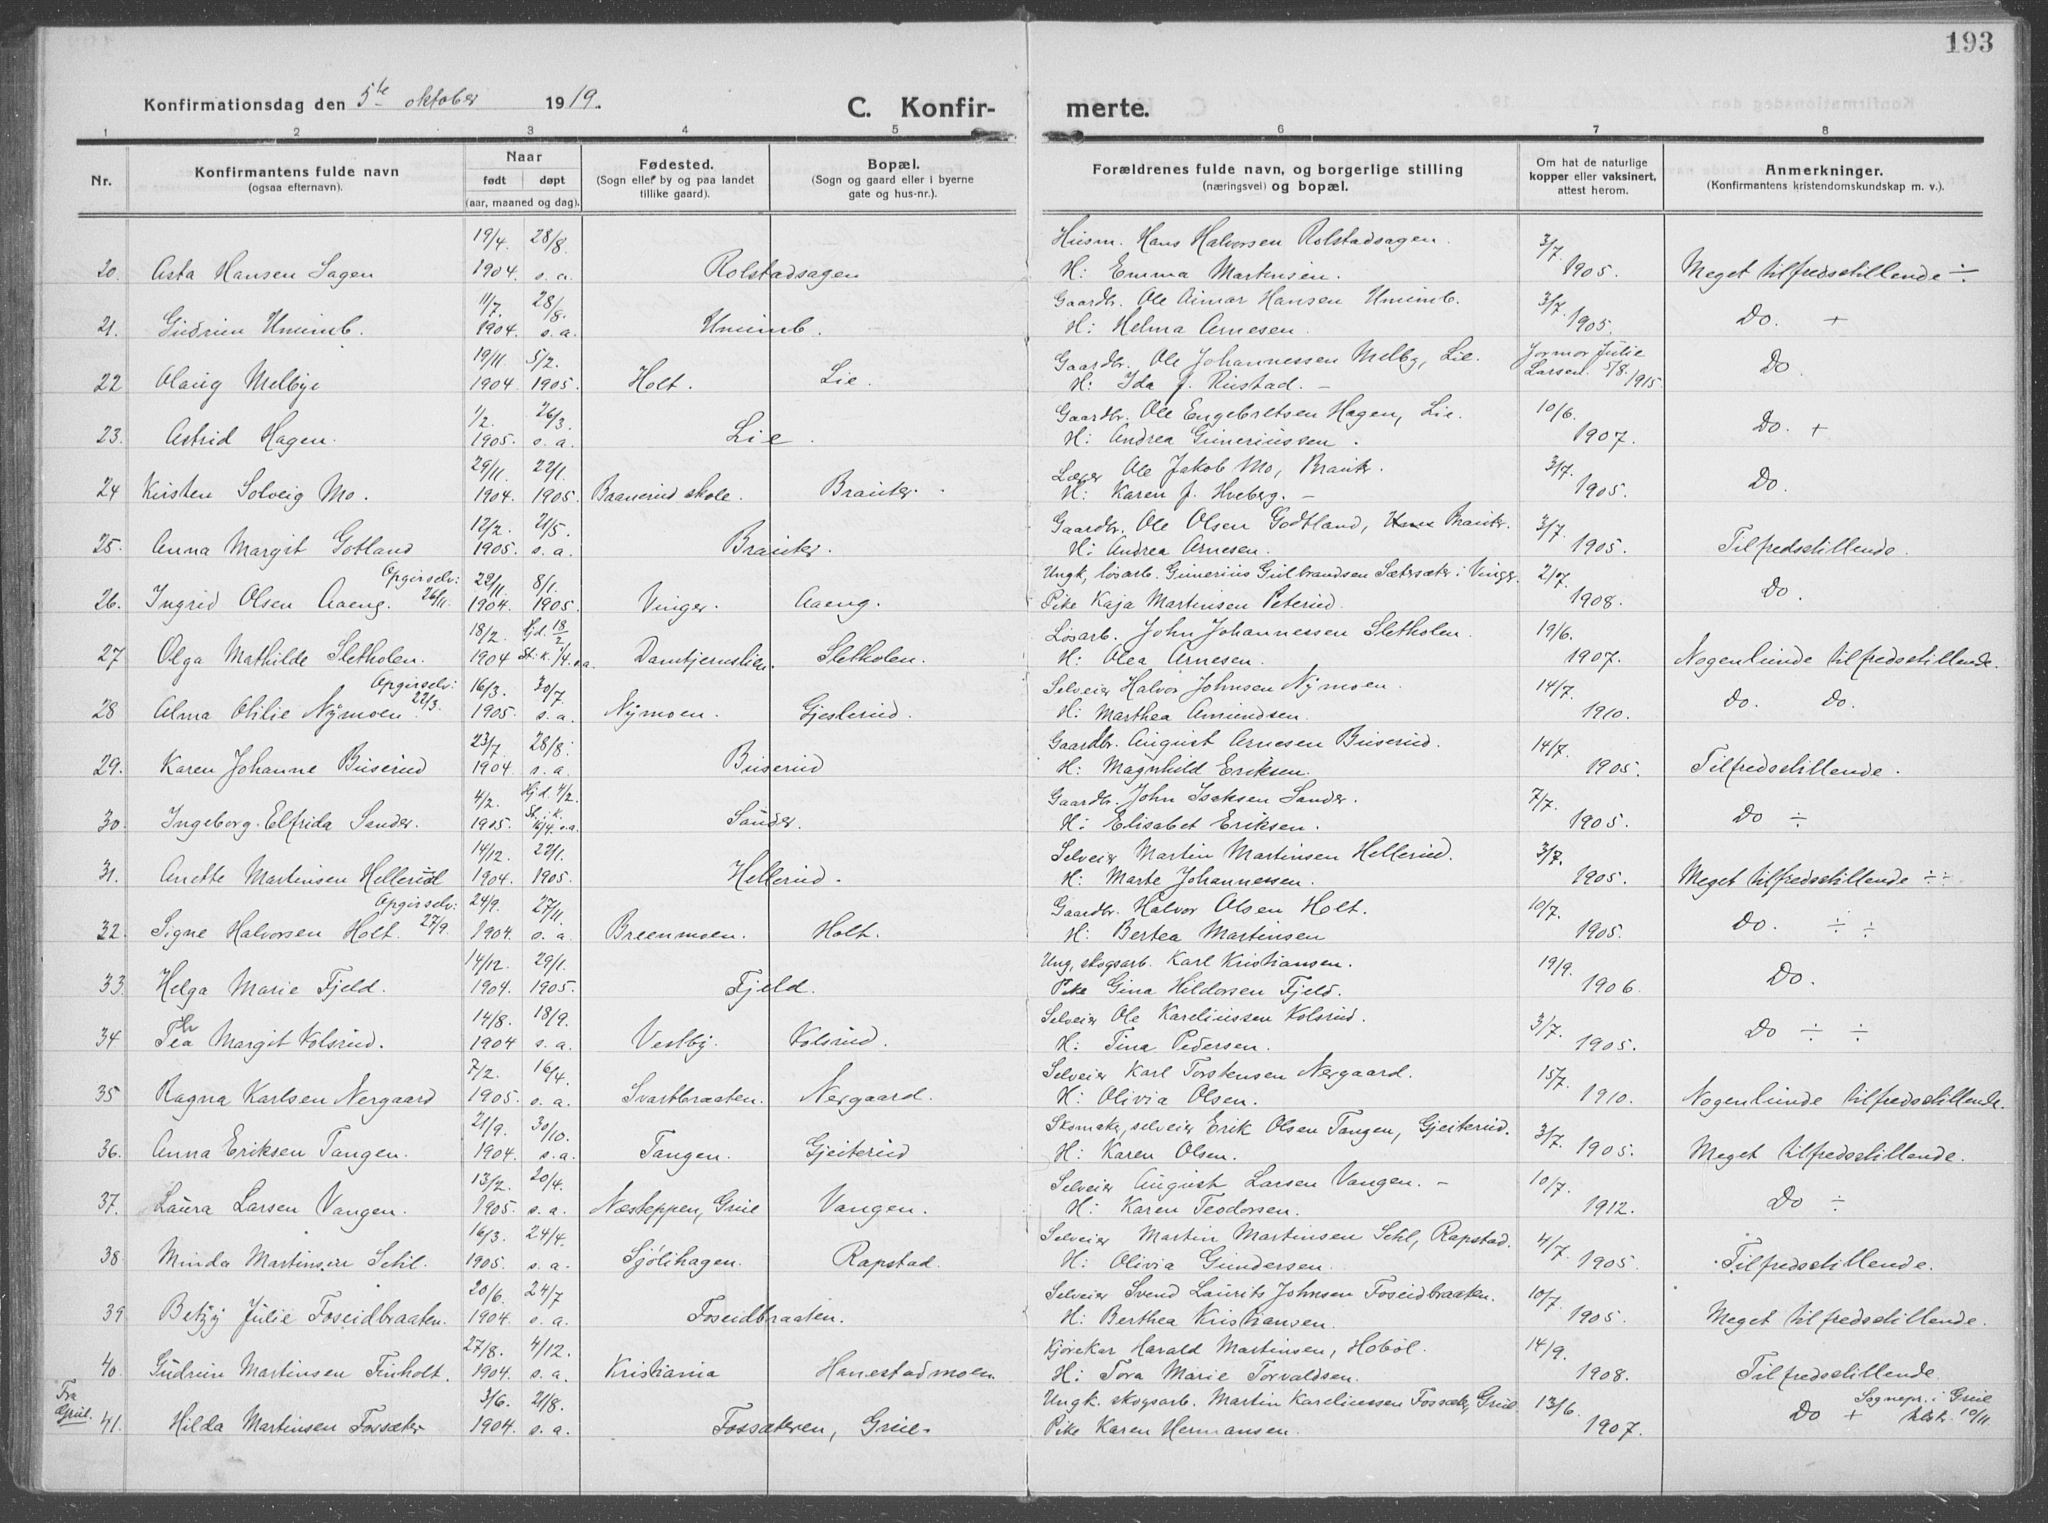 193
Konfirmationsdag den 5te oktober 1919.
C. Konfirmerte.
1 2 3 4 5 6 7 8
Nr.
Konfirmantens fulde navn
(ogsaa efternavn).
Naar
født døpt
(aar, maaned og dag).
Fødested.
(Sogn eller by og paa landet
tillike gaard).
Bopæl.
(Sogn og gaard eller i byerne
gate og hus-nr.).
Forældrenes fulde navn, og borgerlige stilling
(næringsvei) og bopæl.
Om hat de naturlige
kopper eller vaksinert,
attest herom.
Anmerkninger.
(Konfirmantens kristendomskundskap m. v.).
19/4. 28/8. Husm. Hans Halvorsen Rolstadsagen. 3/7.
20. Asta Hansen Sagen 1904. s. a. Rolstadsagen H: Emma Martinsen. 1905. Meget tilfredsstillende ÷
11/7. 28/8. Gaardbr. Ole Aimar Hansen Unumb. 3/7.
21. Gudrun Unumb. 1904. s. a. Unumb. H: Helma Arnesen. 1905. Do. +
19/11. 5/2. Gaardbr. Ole Johannessen Melby, Lie. Jormor Julie
22 Olaug Melbye 1904 1905. Holt. Lie. H: Ida f. Rustad. – Larsen. 5/8. 1915 Do.
1/2. 26/3. Gaardbr. Ole Engebretsen Hagen, Lie. 10/6.
23. Astrid Hagen. 1905. s. a. Lie. H: Andrea Guneriussen. 1907. Do. +
29/11. 22/1. Lærer Ole Jakob Mo, Brauter. 3/7.
24 Kirsten Solveig Mo. 1904. 1905. Baanerud skole. Brauter. H: Karen f. Hveberg. – 1905. Do.
12/2. 21/5. Gaardbr. Ole Olsen Godtland, Brauter. 3/7.
25. Anna Margit Gotland 1905. s. a. Brauter. H: Andrea Arnesen. 1905. Tilfredsstillende.
Opgir selv: 22/11. 8/1. Ungk, løsarb. Gunerius Gulbrandsen Sætersæter i Vinger. 21/7.
26. Ingrid Olsen Aaeng. 26/11. 1904. 1905. Vinger. Aaeng. Pike Kaja Martinsen Peterud. 1908. Do.
18/2. Hj.d. 18/2 Løsarb. John Johannessen Sletholen. 19/6.
27 Olga Mathilde Sletholen. 1904 St. i k. 7/4. s.a. Damtjernslien. Sletholen. H: Olea Arnesen. 1907. Nogenlunde tilfredsstillende.
Opgir selv: 16/3. 30/7. Selveier Halvor Johnsen Nymoen. 14/7.
28 Alma Otilie Nymoen. 22/3. 1905. s. a. Nymoen. Gjesterud. H: Marthea Amundsen. 1910. Do. Do.
23/7. 28/8. Gaardbr. August Arnesen Buserud. 14/7.
29. Karen Johanne Buserud 1904. s. a. Buserud H: Magnhild Eriksen. 1905. Tilfredsstillende.
4/2. Hj.d. 4/2. Gaardbr. John Isaksen Sander. 7/7.
30. Ingeborg Elfrida Sander. 1905. St. i k. 16/4. s.a. Sander. H: Elisabet Eriksen. 1905. Do ÷
14/12. 22/1. Selveier Martin Martinsen Hellerud. 3/7.
31. Anette Martinsen Hellerud 1904. 1905. Hellerud. H: Marte Johannessen. 1905. Meget tilfredsstillende ÷÷
Opgir selv: 24/9. 27/11. Gaardbr. Halvor Olsen Holt. 10/7.
32. Signe Halvorsen Holt. 27/9. 1904. s. a. Breenmoen. Holt. H: Bertea Martinsen 1905. Do. ÷ ÷
14/12. 29/1. Ung, skogsarb. Karl Kristiansen. 19/9.
33. Helga Marie Fjeld. 1904. 1905. Fjeld. Pike Gina Hildorsen Fjeld. 1906. Do.
14/8. 18/9. Selveier Ole Kareliussen Kolsrud. 3/7.
34 Thea Margit Kolsrud. 1904 s. a. Vestby. Kolsrud. H: Tina Pedersen. 1905. Do ÷ ÷
7/2. 16/4. Selveier Karl Torstensen Nergaard. 15/7.
35 Ragna Karlsen Nergaard 1905. s. a. Svartbraaten. Nergaard. H: Olivia Olsen. 1910. Nogenlunde tilfredsstillende.
21/9. 30/10. Skomaker, selveier Erik Olsen Tangen, Gjeiterud. 3/7.
36. Anna Eriksen Tangen. 1904. s. a. Tangen. Gjeiterud H: Karen Olsen. 1905. Meget tilfredsstillende.
13/2. 20/4. Selveier August Larsen Vangen. – 10/7.
37. Laura Larsen Vangen. 1905. s. a. Næsteppen, Grue Vangen. H: Karen Teodorsen. 1912. Do ÷
16/3. 24/4. Selveier Martin Martinsen Sehl, Rapstad. 4/7.
38. Minda Martinsen Sehl. 1905. s. a. Sjølihagen. Rapstad. H: Olivia Gundersen. 1905. Tilfredsstillende.
20/6. 24/7 Selveier Svend Laurits Johnsen Foseidbraaten. 10/7.
39 Betzy Julie Foseidbraaten. 1904. s. a. Foseidbraaten. H: Berthea Kristiansen. 1905. Meget tilfredsstillende.
27/8. 4/12. Kjørekar Harald Martinsen, Hobøl. 14/9.
40. Gudrun Martinsen Finholt. 1904. s. a. Kristiania Hanestadmoen H: Tora Marie Torvaldsen. 1908. Tilfredsstillende.
Fra Grue. 3/6. 21/8. Ungk. skogsarb. Martin Kareliussen Fossæter, Grue. 13/6. Sognepr. i Grue
41. Hilda Martinsen Fossæter 1904. s. a. Fossæteren, Grue. Pike Karen Hermansen. 1907. Do + 10/11.